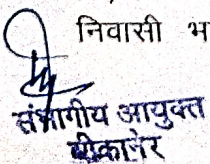 निवासी भ
संभागीय आयुक्त
बीकानेर